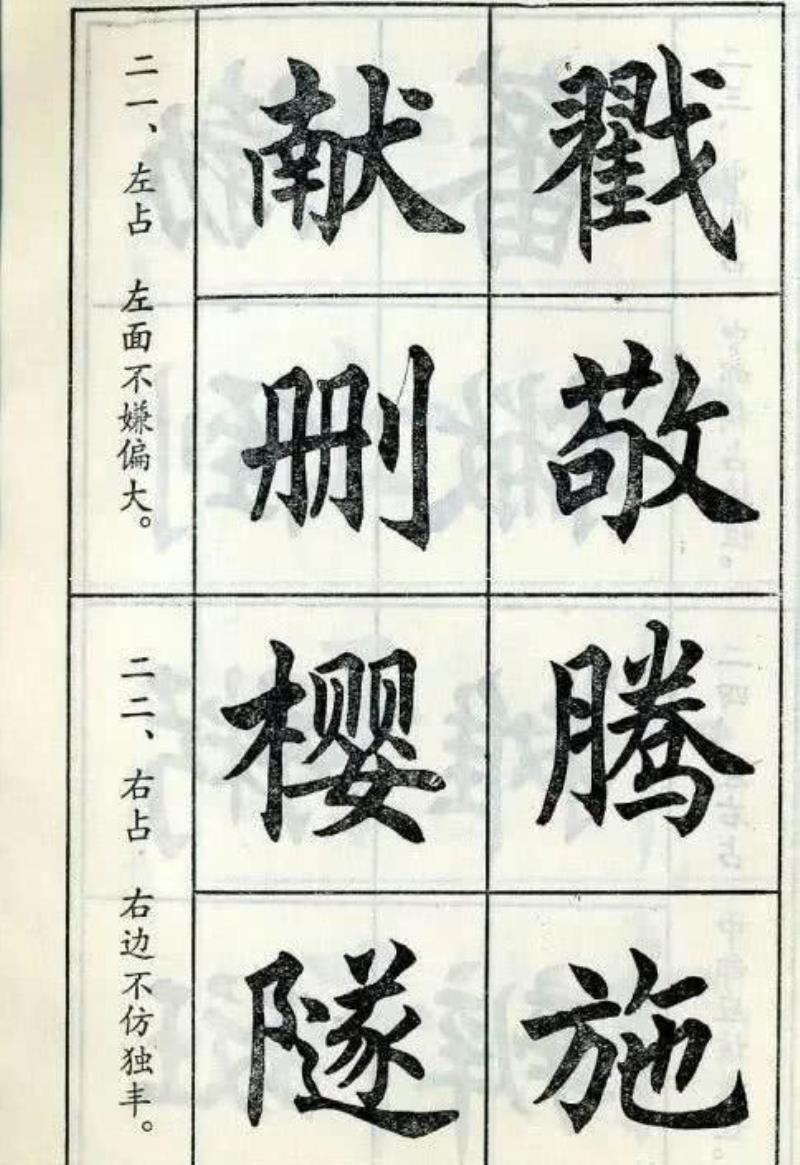 二一、左占 左面不嫌偏大。
戳
敬
献
删
二二、右占 右边不仿独丰。
腾
施
樱
隧